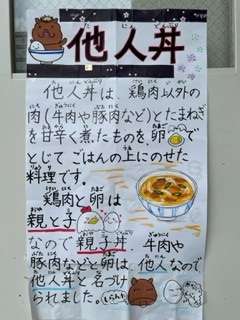 他人丼
他人丼は、鶏肉以外の
肉(牛肉や豚肉など)とたまねぎ
を甘辛く煮たものを、卵で
とじてごはんの上にのせた
料理です。
鶏肉と卵は
親と子
なので親子丼、牛肉や
豚肉などと卵は、他人なので
他人丼と名づけ
られました。